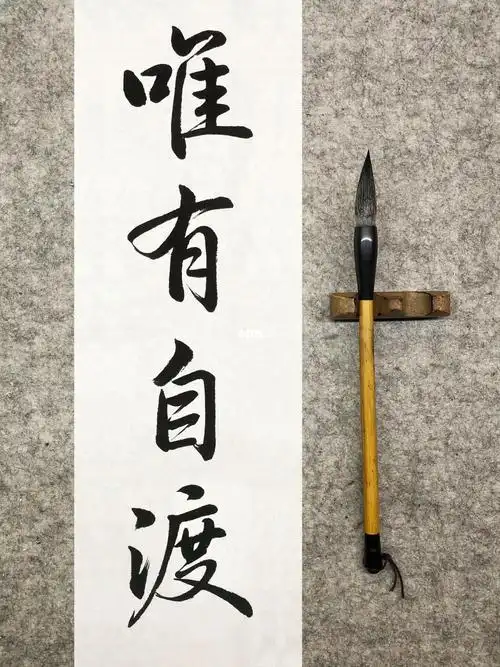 唯有自渡